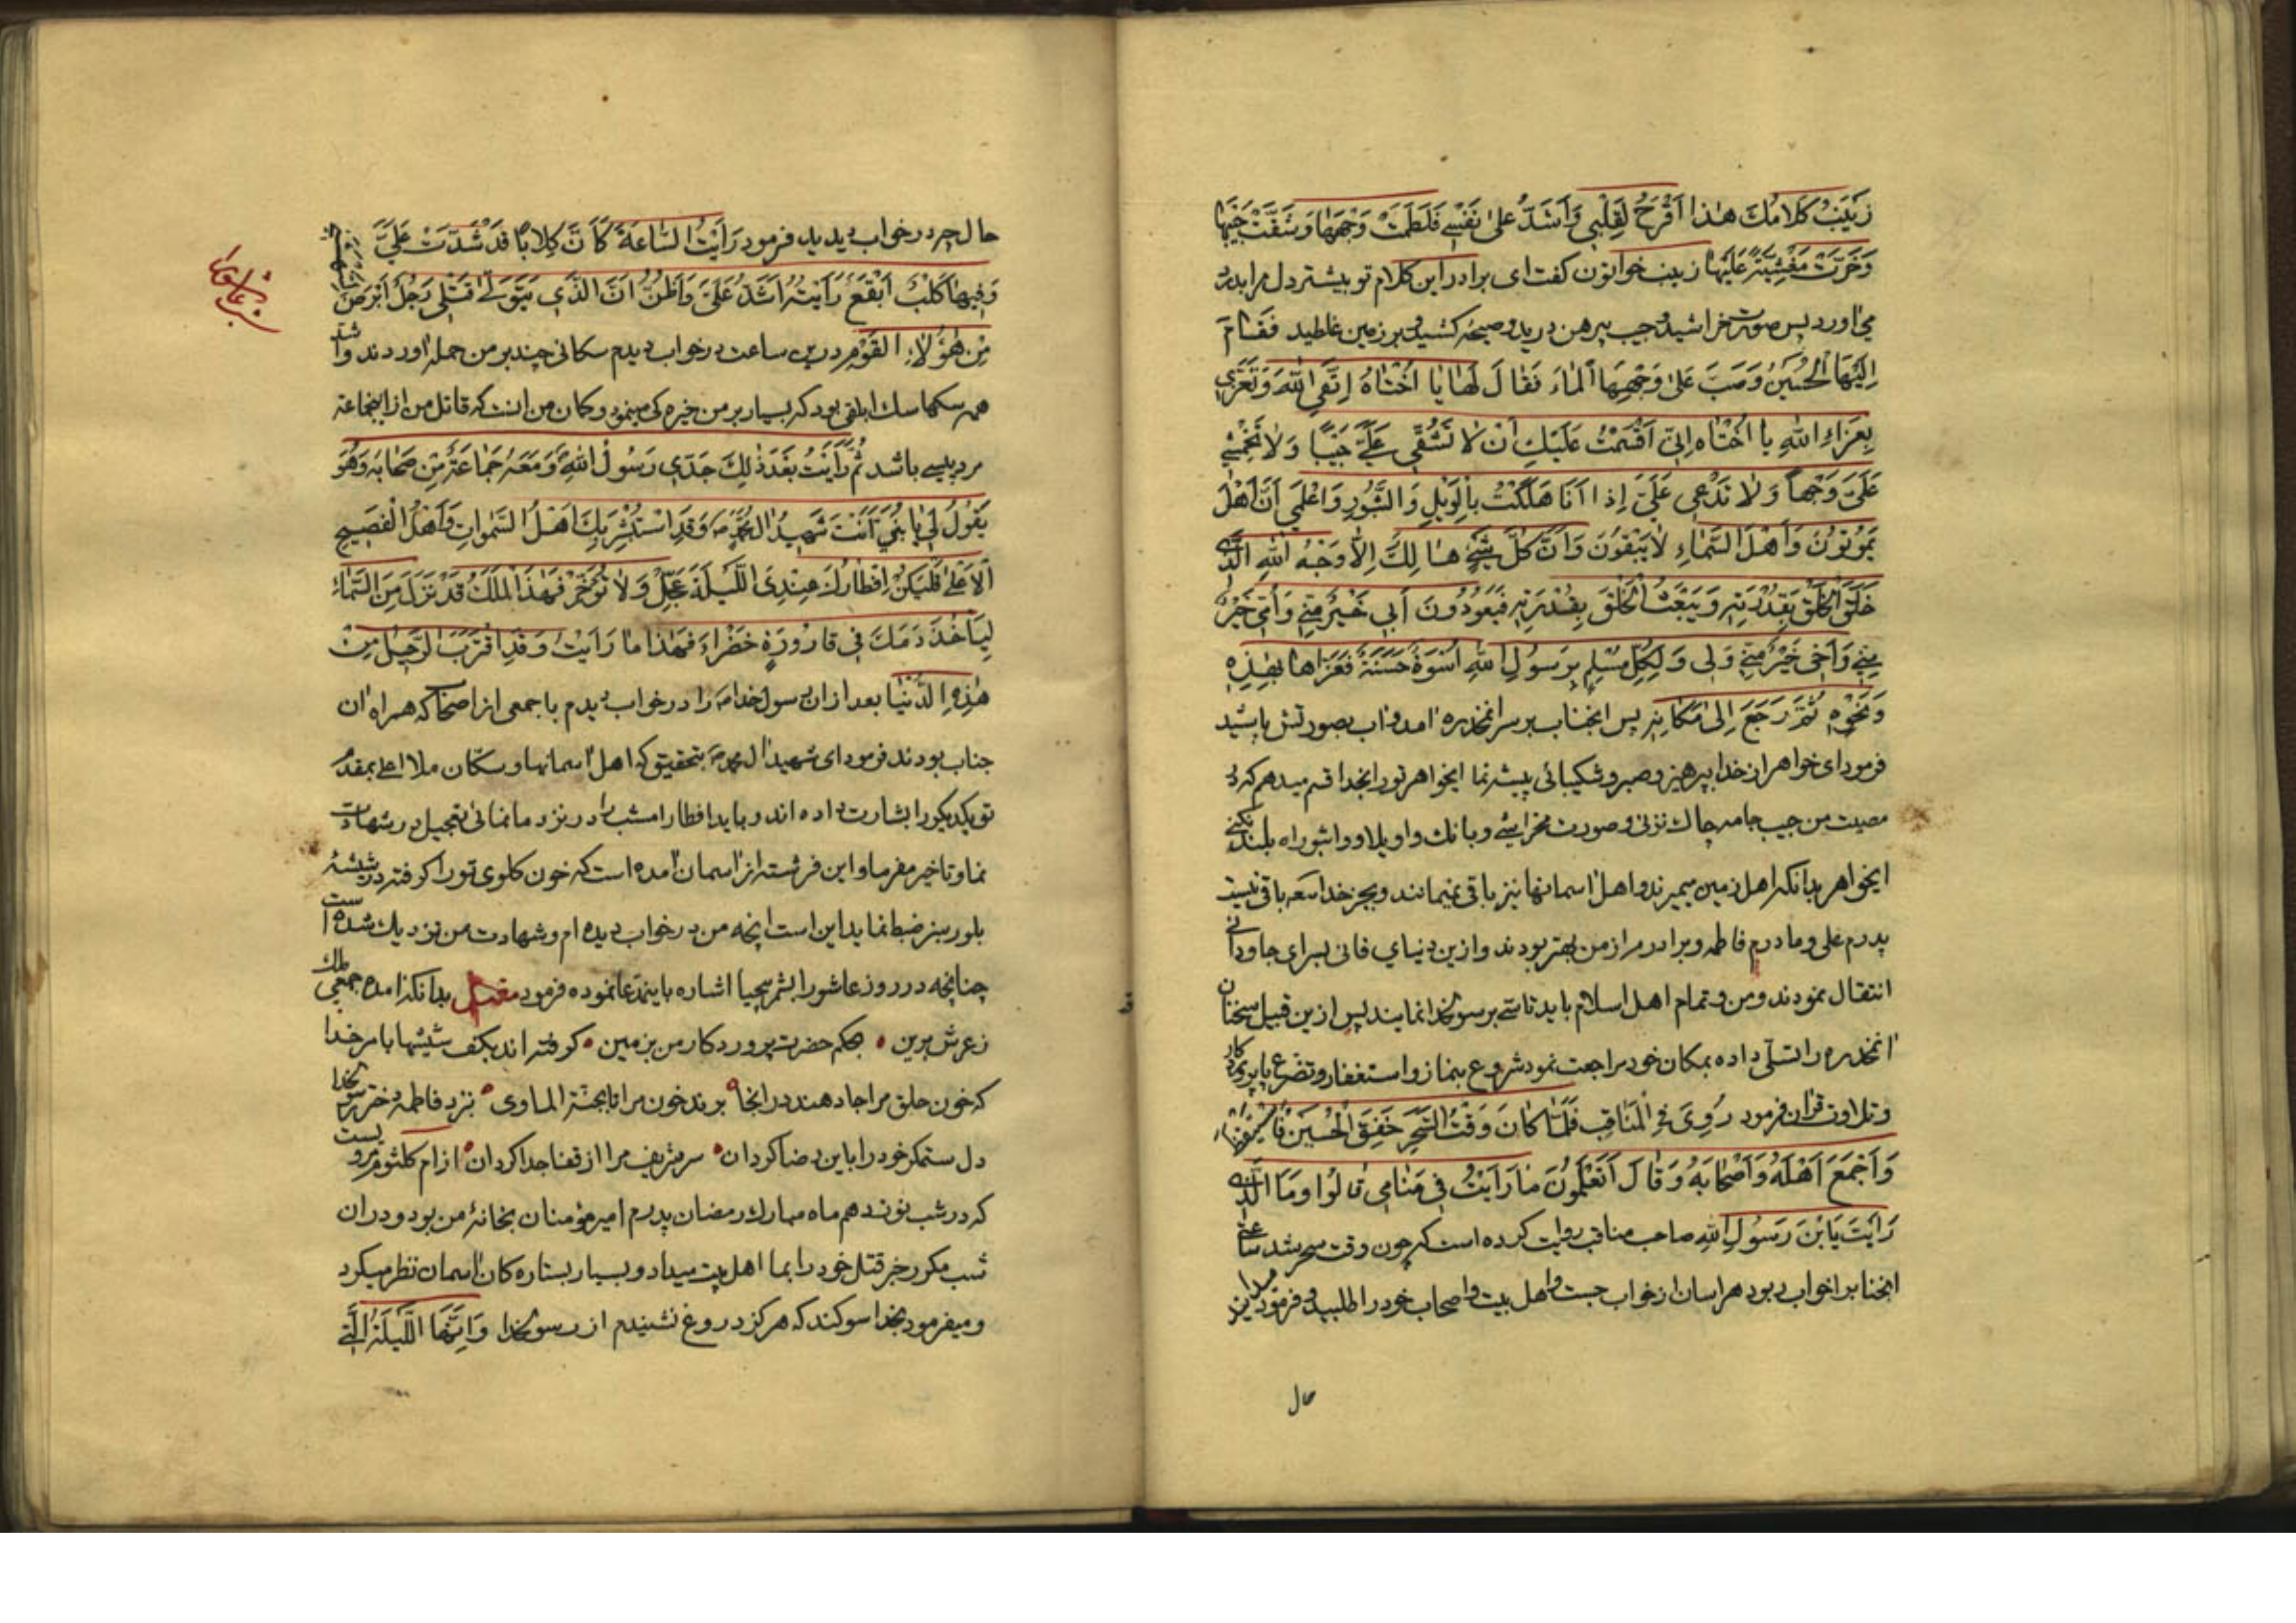 زَيْنَبُ كَلامُكَ هٰذا اَقْرَحُ لِقَلْبي وَاَشَدُّ عَلىٰ نَفْسي فَلَطَمَتْ وَجْهَهٰا وَشَقَّتْ جَيْبَهٰا
وَخَرَّتْ مَغْشِيَّةً عَلَيْهٰا زينب خواتون كفت اى برادر اين كلام تو بيشتر دل مرا بدرد
مى اورد پس صورت خراشيد و جيب پيرهن دريد و صيحه كشيد و بر زمين غلطيد فَقٰامَ
اِلَيْهَا الْحُسَيْنُ وَصَبَّ عَلىٰ وَجْهِهَا الْمٰاءَ فَقٰالَ لَهٰا يٰا اُخْتٰاهُ اِتَّقِي اللّٰهَ وَتَعَزَّي
بِعَزٰاءِ اللّٰهِ يا اُخْتٰاه اِنّي اَقْسَمْتُ عَلَيْكِ اَنْ لا تَشُقّي عَلَيَّ جَيْبًا وَلا تَخْمِشي
عَلَيَّ وَجْهاً وَلا تَدْعي عَلَيَّ اِذا اَنَا هَلَكْتُ بِالْوَيْلِ وَالثُّبُورِ وَاعْلَمي اَنَّ اَهْلَ
يَمُوتُونَ وَاَهْلَ السَّمٰاءِ لا يَبْقَوْنَ وَاَنَّ كُلَّ شَيْءٍ هٰالِكٌ اِلّا وَجْهُ اللّٰهِ الَّذي
خَلَقَ الْخَلْقَ بِقُدْرَتِهِ وَيَبْعَثُ الْخَلْقَ بِقُدْرَتِهِ فَيَعُودُونَ اَبي خَيْرٌ مِنّي وَاُمّي خَيْرٌ
مِنّي وَاَخي خَيْرٌ مِنّي وَلي وَلِكُلِّ مُسْلِمٍ بِرَسُولِ اللّٰهِ اُسْوَةٌ حَسَنَةٌ فَعَزّاهٰا بِهٰذِهِ
وَنَحْوِهِ ثُمَّ رَجَعَ اِلىٰ مَكٰانِهِ پس انجناب بر سر انمخدره امد واب بصورتش پاشيد
فرمود اى خواهر از خدا بپرهيز و صبر و شكيبائى پيشه نما ايخواهر تو را بخدا قسم ميدهم كه در
مصيبت من جيب جامه چاك نزنى و صورت نخراشى و بانك واويلا و واثبوراه بلند نكنى
ايخواهر بدانكه اهل زمين ميميرند و اهل اسمانها نيز باقى نميمانند و بجز خدا همه باقى نيست
پدرم على و مادرم فاطمه و برادرم از من بهتر بودند و ازين دنياي فانى بسراى جاودانى
انتقال نمودند و من و تمام اهل اسلام بايد تاسى برسولخدا نمايند پس ازين قبيل سخنان
انمخدره را تسلى داده بمكان خود مراجعت نمود شروع بنماز و استغفار و تضرع
وتلاوت قران فرمود رُوِيَ فِي الْمَنٰاقِبِ فَلَمّٰا كٰانَ وَقْتُ السَّحَرِ خَفَقَ الْحُسَيْنُ
وَاَجْمَعَ اَهْلَهُ وَاَصْحٰابَهُ وَقٰالَ اَتَعْلَمُونَ مٰا رَاَيْتُ في مَنٰامي قٰالُوا وَمَا الَّذي
رَاَيْتَ يَابْنَ رَسُولِ اللّٰهِ صاحب مناقب روايت كرده است كه چون وقت سحر شد ساعتى
انجناب را خواب ربود هراسان از خواب جست و اهل بيت و اصحاب خود را طلبيد و فرمود
حال
حال چه در خواب ديديد فرمود رَاَيْتُ السّٰاعَةَ كَاَنَّ كِلابًا قَدْ شَدَّتْ عَلَيَّ
وَفيهٰا كَلْبٌ اَبْقَعُ رَاَيْتُهُ اَشَدَّ عَلَيَّ وَاَظُنُّ اَنَّ الَّذي يَتَوَلّىٰ قَتْلي رَجُلٌ اَبْرَصُ
مِنْ هٰؤُلاءِ الْقَوْمِ درين ساعت در خواب ديدم سكانى چند بر من حمله اوردند و اشد
همه سكها سك ابلقى بود كه بسيار بر من خيره كى مينمود و كمان من انست كه قاتل من از اينجماعة
مرد پيسى باشد ثُمَّ رَاَيْتُ بَعْدَ ذٰلِكَ جَدّي رَسُولَ اللّٰهِ وَمَعَهُ جَمٰاعَةٌ مِنْ صَحٰابِهِ وَهُوَ
يَقُولُ لي يٰا بُنَيَّ اَنْتَ شَهيدُ الِ مُحَمَّدٍ وَقَدِ اسْتَبْشَرَ بِكَ اَهْلُ السَّمٰوٰاتِ وَاَهْلُ الْفَصيحِ
الْاَعْلىٰ فَلْيَكُنْ اِفْطٰارُكَ عِنْدِيَ اللَّيْلَةَ عَجِّلْ وَلا تُؤَخِّرْ فَهٰذَا الْمَلَكُ قَدْ نَزَلَ مِنَ السَّمٰاءِ
لِيَاْخُذَ دَمَكَ في قٰارُورَةٍ خَضْرٰاءَ فَهٰذا مٰا رَاَيْتُ وَقَدِ اقْتَرَبَ الرَّحيلُ مِنْ
هٰذِهِ الدُّنْيٰا بعد از ان رسول خدا را در خواب ديدم با جمعى از اصحاب كه همراه ان
جناب بودند فرمود اى شهيد ال محمد بتحقيق كه اهل اسمانها و سكّان ملا اعلى بمقدم
تو يكديكر را بشارت داده اند و بايد افطار امشب را در نزد ما نمائى تعجيل در شهادت
نما و تاخير مفرما و اين فرشته از اسمان امده است كه خون كلوى تو را كرفته در شيشهٔ
بلور سبز ضبط نمايد اين است انچه من در خواب ديده ام و شهادت من نزديك شده است
چنانچه در روز عاشورا بشمر بيحيا اشاره باينمدعا نموده فرمود بدانكه امده جمعى ملك
زعرش برين • بحكم حضرت پروردكار من بزمين • كرفته اند بكف شيشها بامر خدا
كه خون حلق مرا جا دهند در انجا • برند خون مرا تا بجنّة الماوى • نزد فاطمه دختر رسولخدا
دل ستمكر خود را باين رضا كردان • سر شريف مرا از قفا جدا كردان • از ام كلثوم مرويست
كه در شب نوزدهم ماه مبارك رمضان پدرم امير مؤمنان بخانهٔ من بود و در ان
شب مكرر خبر قتل خود را بما اهل بيت ميداد و بسيار بستاره كان اسمان نظر ميكرد
و ميفرمود بخدا سوكند كه هركز دروغ نشنيدم از رسولخدا وَاِنَّهَا اللَّيْلَةُ الَّتي